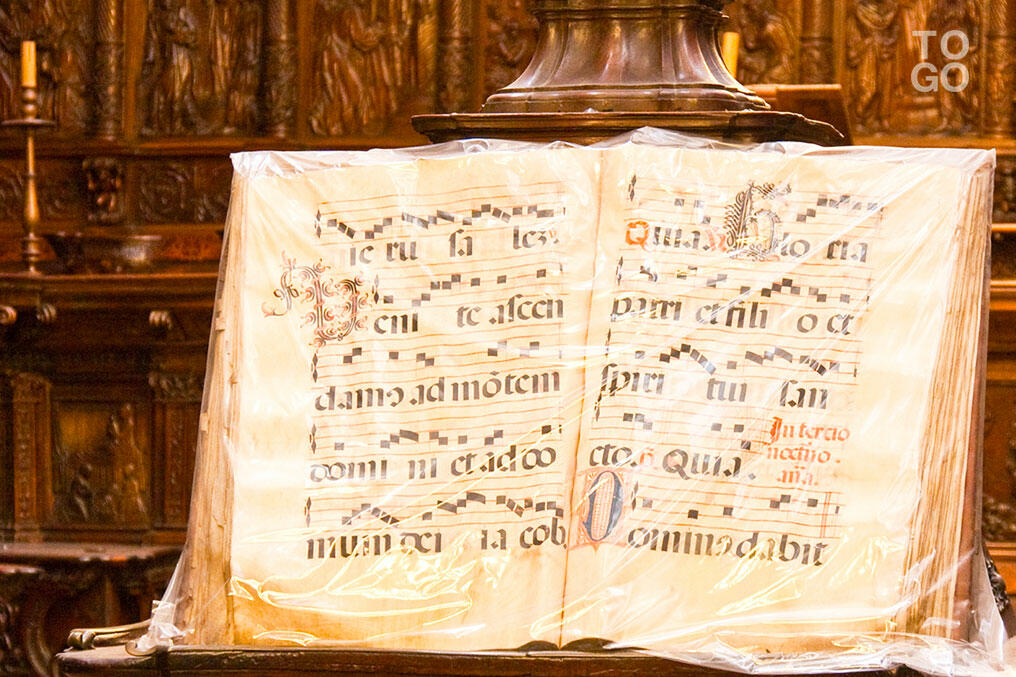 TO
GO
ie ru sa lez
Veni te ascen
damꝰ ad mõtem
domi ni et ad do
mum dei ia cob
Quia Glo ria
patri et fili o et
spiri tui san
cto. Quia.
In tercio
noct̃no.
añ.
Dominꝰ dabit